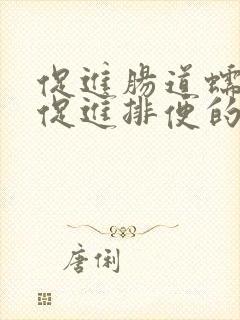 促進腸道蠕
促進排便的
唐俐